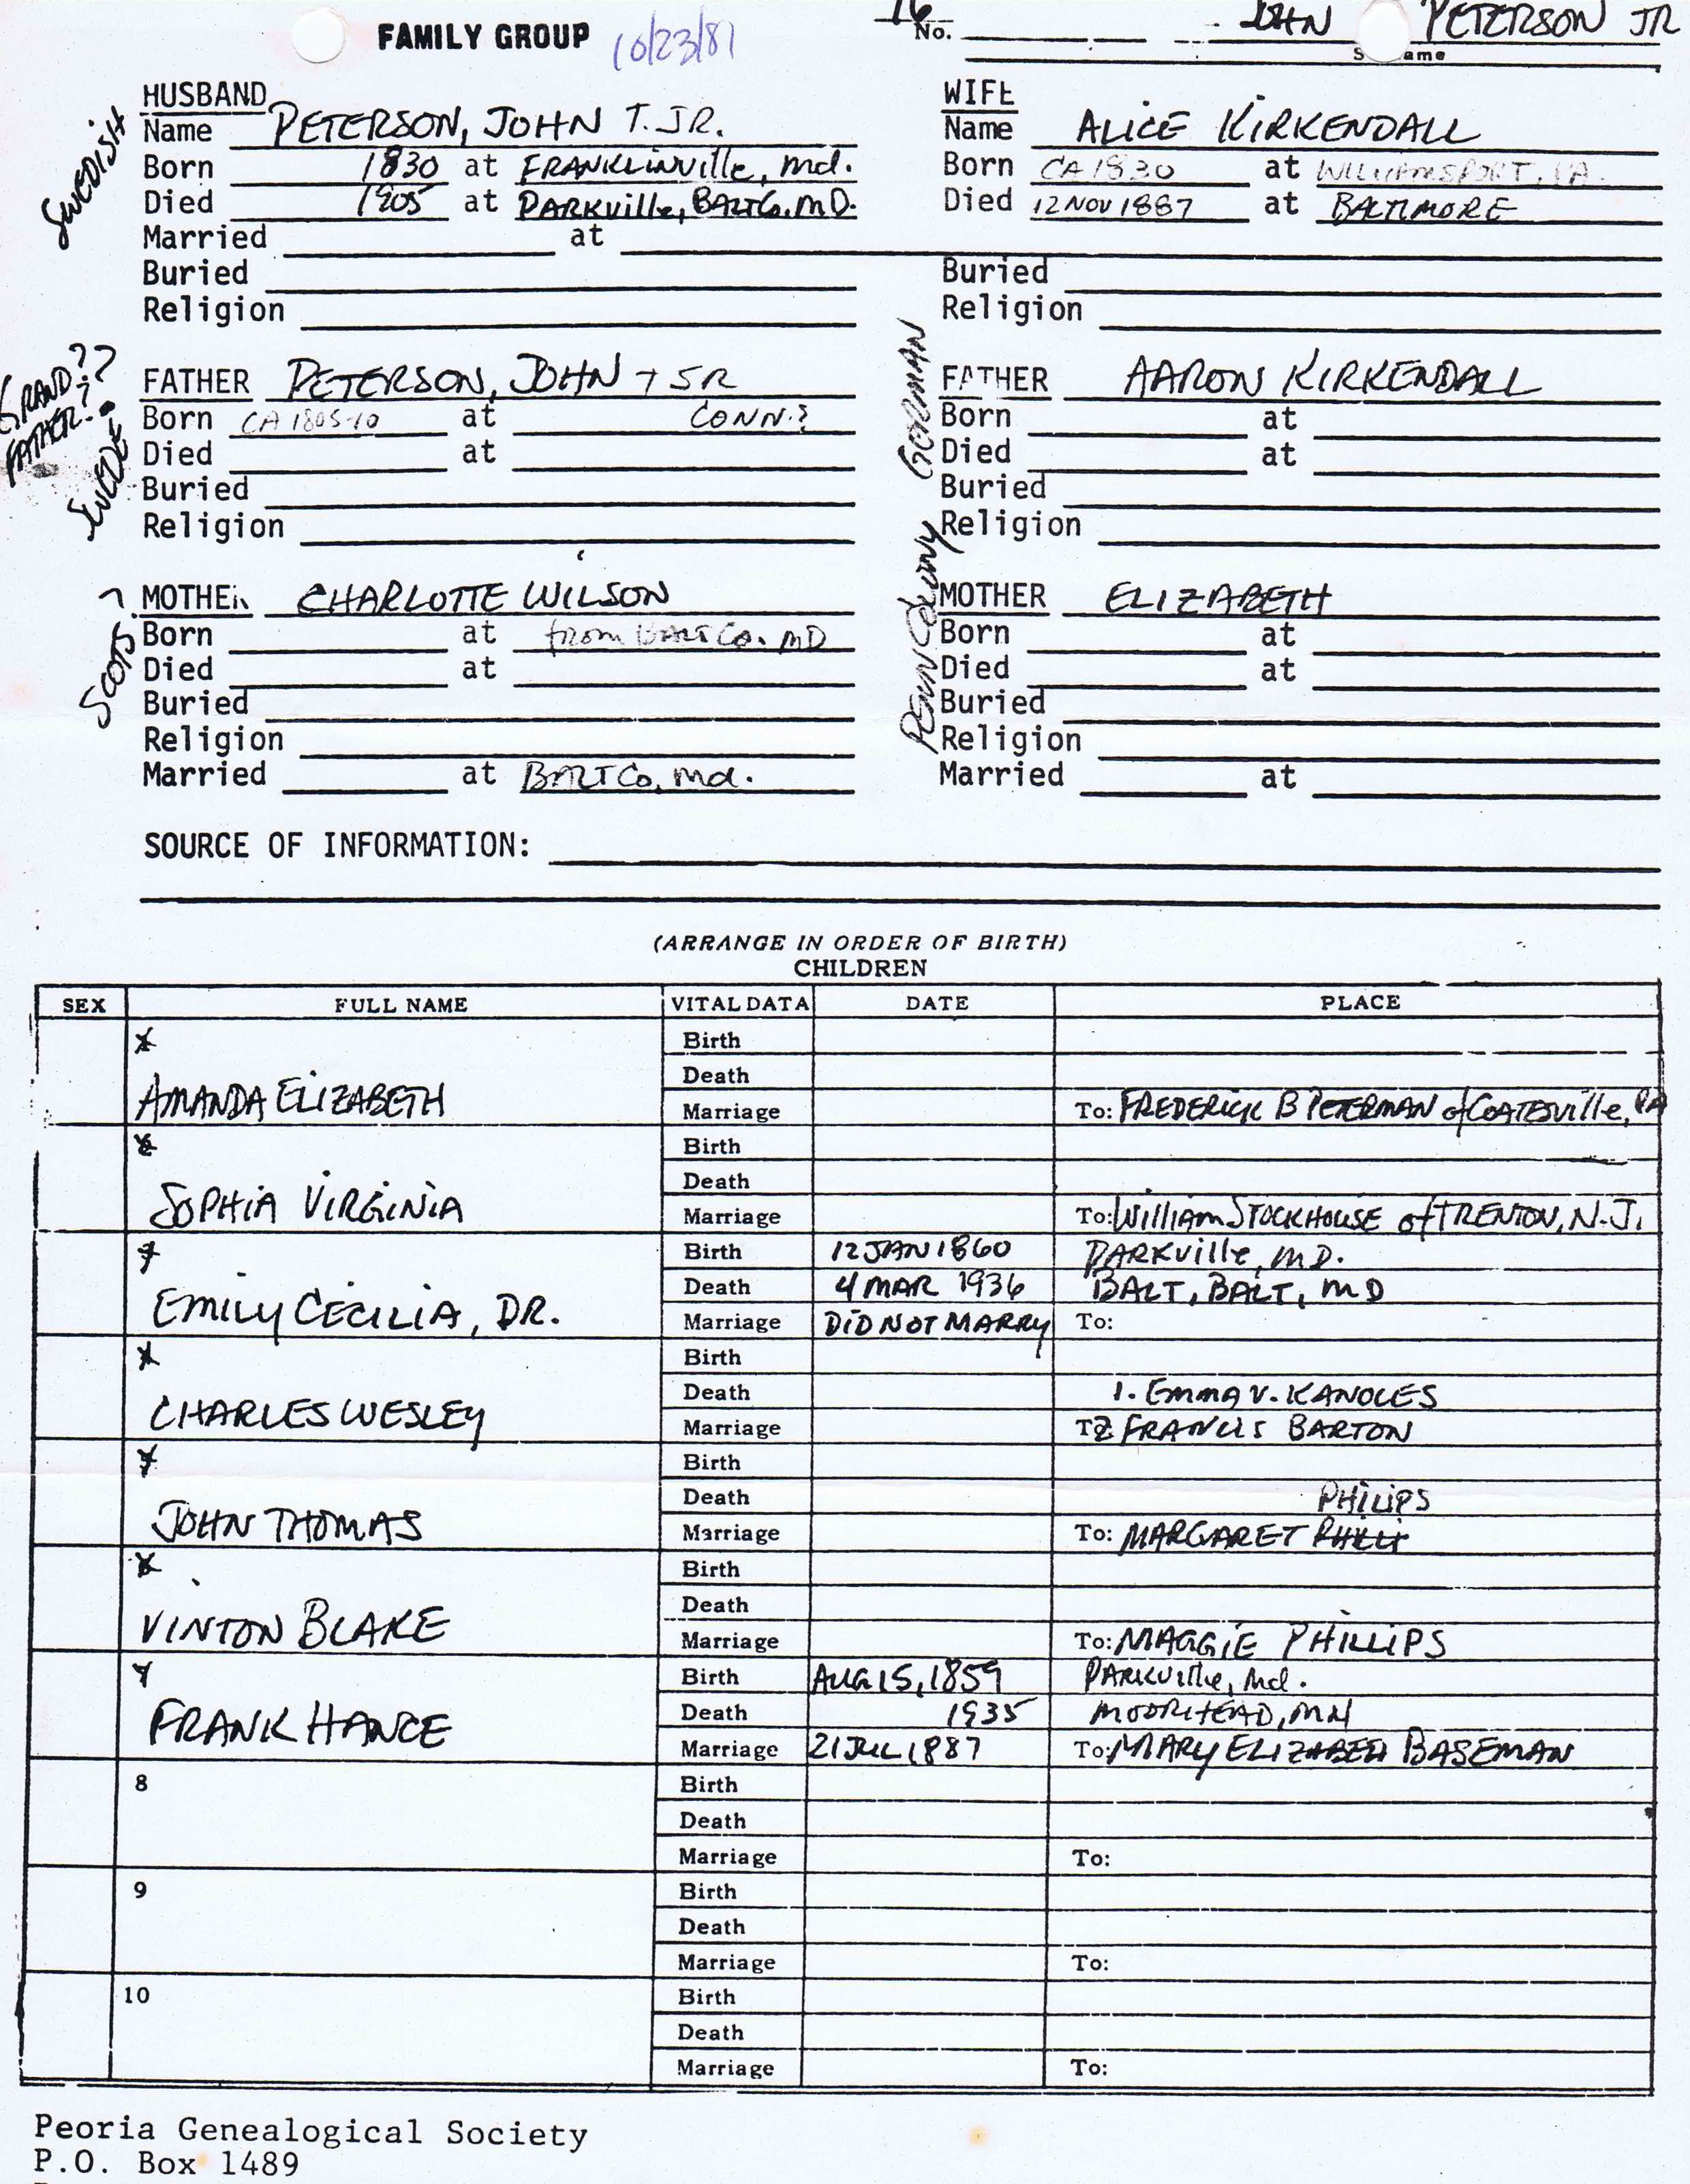 FAMILY GROUP 10/23/81
16
No. JOHN PETERSON JR
HUSBAND
Name PETERSON, JOHN T. JR.
Born 1830 at FRANKLINVille, Md.
Died 1905 at PARKVille, BALTCo. MD.
Married at
Buried
Religion
SWEDISH
WIFE
Name ALICE KIRKENDALL
Born CA 1830 at WILLIAMSPORT, PA.
Died 12 NOV 1887 at BALTIMORE
Buried
Religion
FATHER PETERSON, JOHN T SR
Born CA 1805-10 at CONN.?
Died at
Buried
Religion
GRAND??
FATHER.?
SWEDE
FATHER AARON KIRKENDALL
Born at
Died at
Buried
Religion
PENN COLONY GERMAN
MOTHER CHARLOTTE WILSON
Born at from BALT Co. MD
Died at
Buried
Religion
Married at BALT Co, Md.
SCOTS ?
MOTHER ELIZABETH
Born at
Died at
Buried
Religion
Married at
SOURCE OF INFORMATION:
(ARRANGE IN ORDER OF BIRTH)
CHILDREN
SEX FULL NAME VITAL DATA DATE PLACE
Birth
Death
AMANDA ELIZABETH Marriage To: FREDERICK B PETERMAN of COATESville, PA
Birth
Death
SOPHIA VIRGINIA Marriage To: William STOCKHOUSE of TRENTON, N.J.
Birth 12 JAN 1860 PARKville, MD.
Death 4 MAR 1936 BALT, BALT, MD
EMILY CECILIA, DR. Marriage DID NOT MARRY To:
Birth
Death 1. EMMA V. KANOLES
CHARLES WESLEY Marriage T2 FRANCIS BARTON
Birth
Death PHILIPS
JOHN THOMAS Marriage To: MARGARET PHILLI
Birth
Death
VINTON BLAKE Marriage To: MAGGIE PHILLIPS
Birth AUG 15, 1859 PARKville, Md.
Death 1935 MOORHEAD, MN
FRANK HANCE Marriage 21 JUL 1887 To: MARY ELIZABETH BASEMAN
8 Birth
Death
Marriage To:
9 Birth
Death
Marriage To:
10 Birth
Death
Marriage To:
Peoria Genealogical Society
P.O. Box 1489